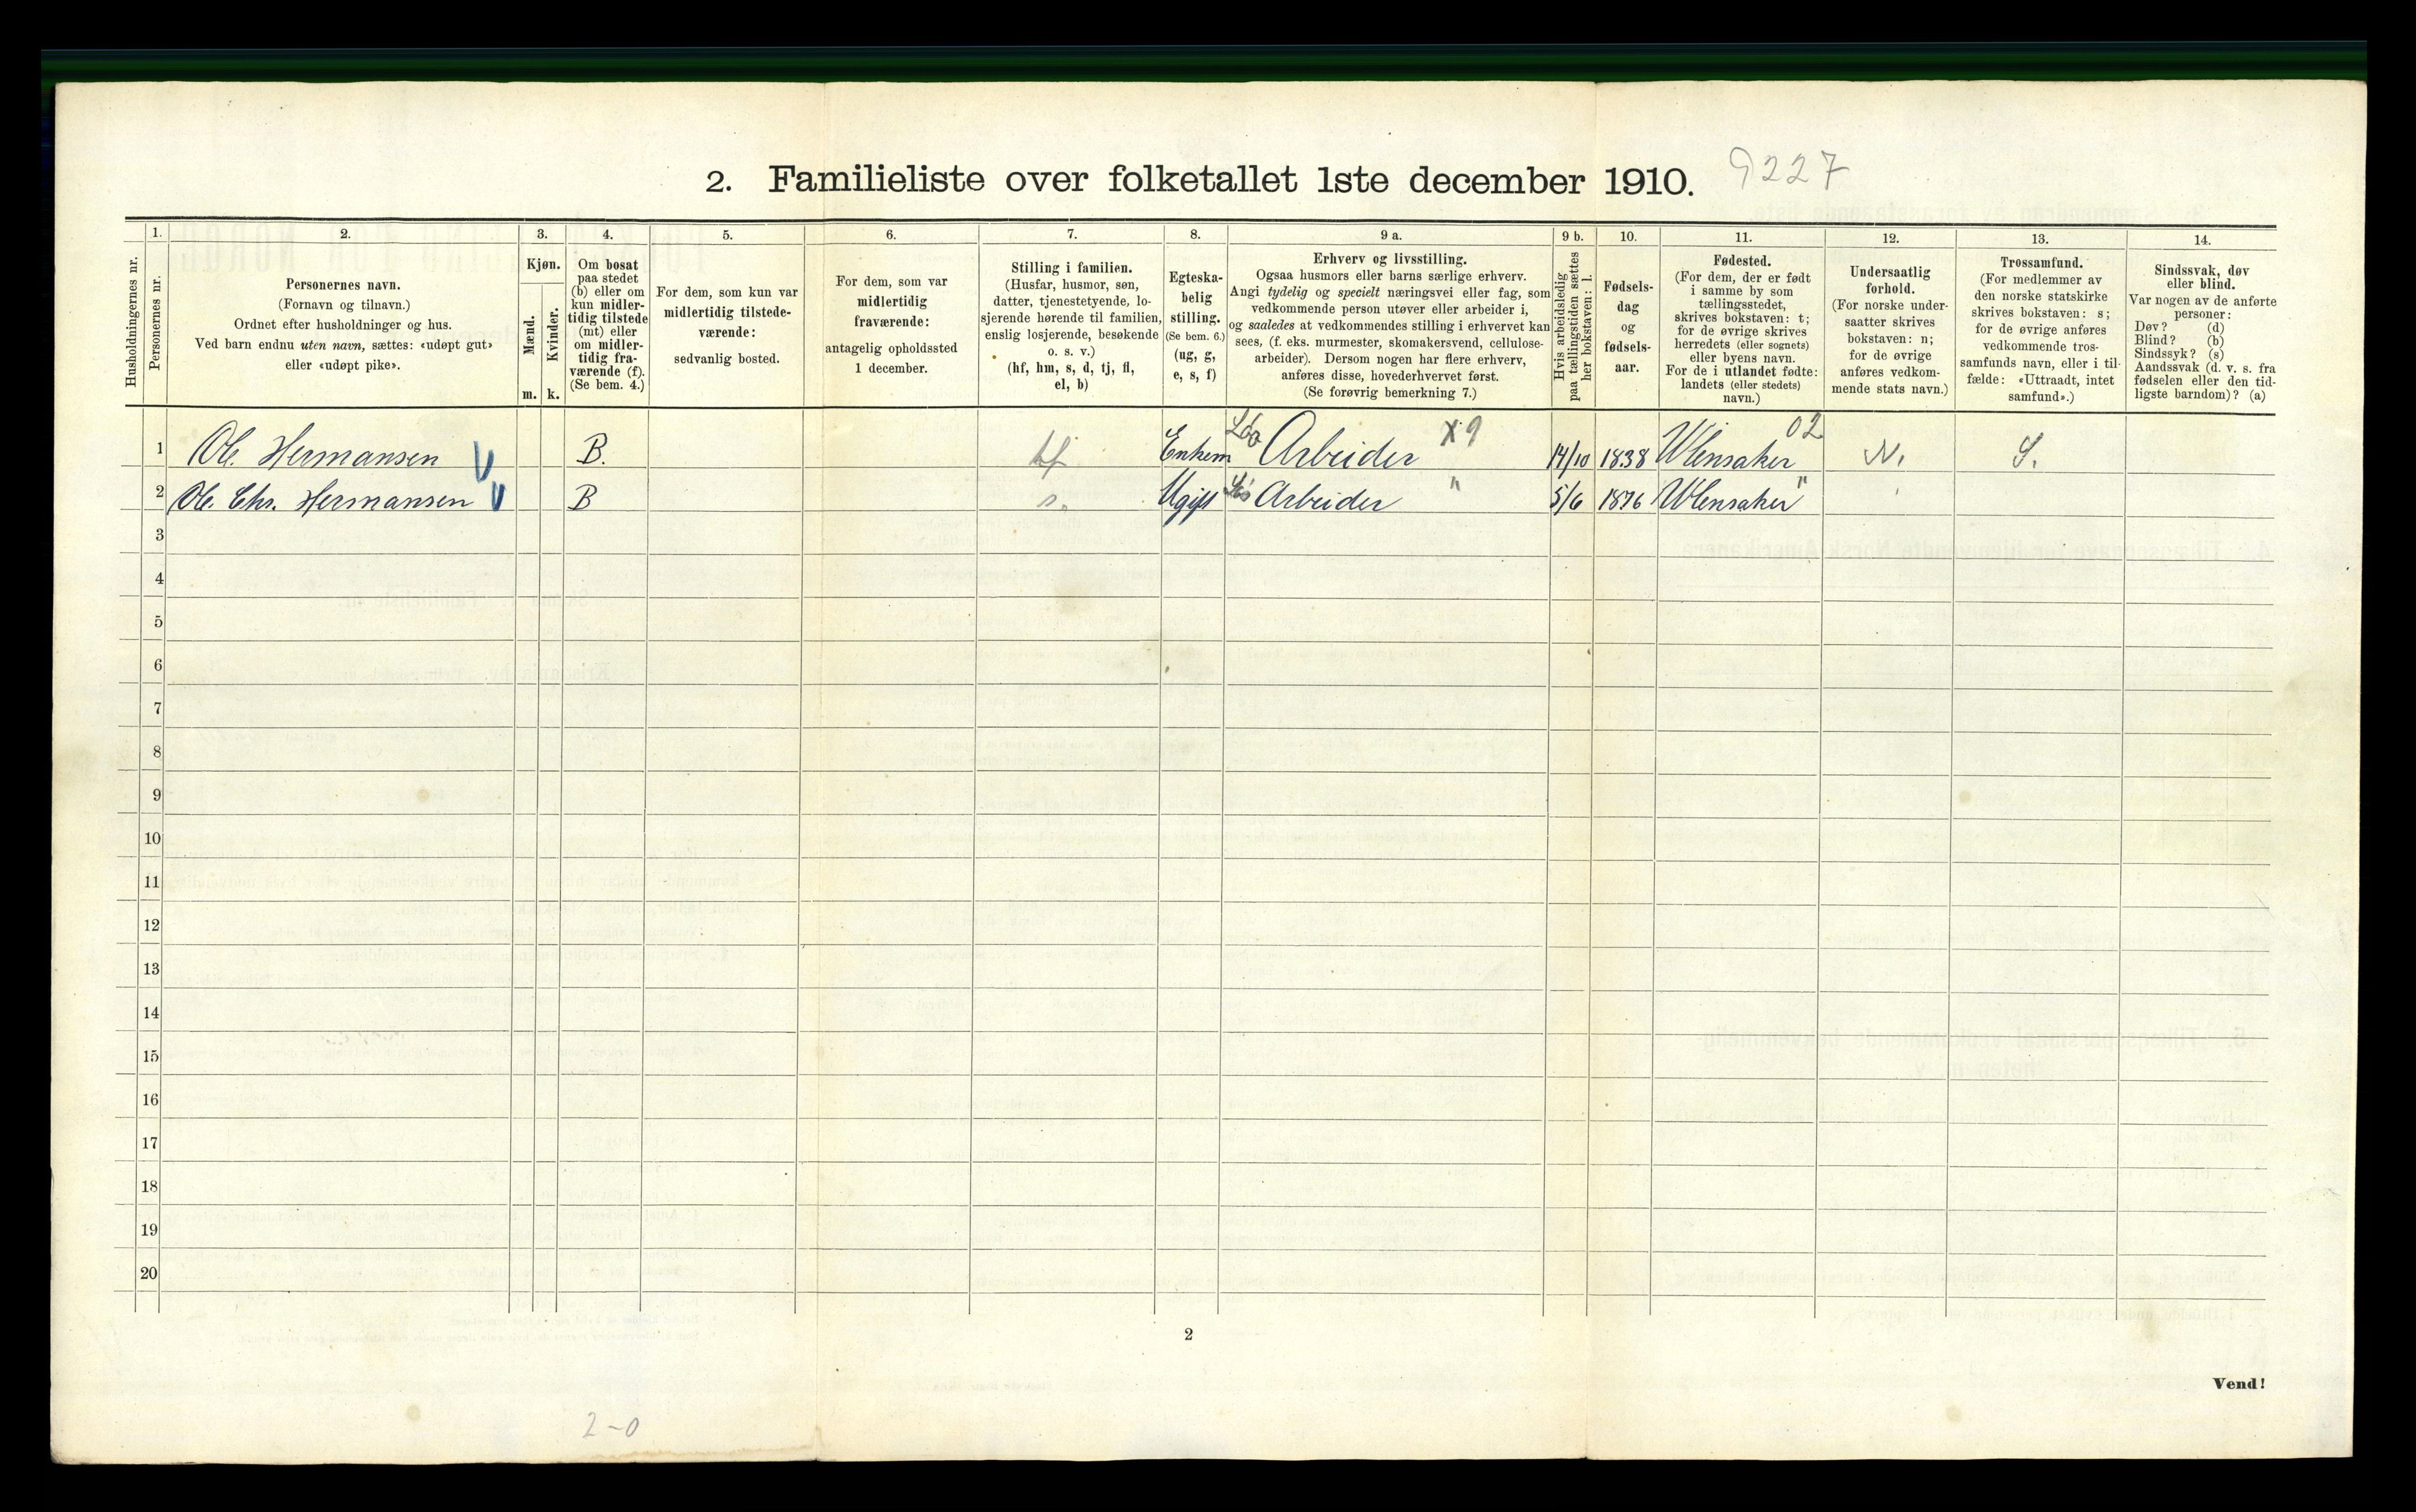 2. Familieliste over folketallet 1ste december 1910. 9227
Husholdningernes nr.
1.
Personernes nr.
2.
Personernes navn.
(Fornavn og tilnavn.)
Ordnet efter husholdninger og hus.
Ved barn endnu uten navn, sættes: «udøpt gut»
eller «udøpt pike».
3.
Kjøn.
Mænd.
m.
Kvinder.
k.
4.
Om bosat
paa stedet
(b) eller om
kun midler-
tidig tilstede
(mt) eller
om midler-
tidig fra-
værende (f).
(Se bem. 4.)
5.
For dem, som kun var
midlertidig tilstede-
værende:
sedvanlig bosted.
6.
For dem, som var
midlertidig
fraværende:
antagelig opholdssted
1 december.
7.
Stilling i familien.
(Husfar, husmor, søn,
datter, tjenestetyende, lo-
sjerende hørende til familien,
enslig losjerende, besøkende
o. s. v.)
(hf, hm, s, d, tj, fl,
el, b)
8.
Egteska-
belig
stilling.
(Se bem. 6.)
(ug, g,
e, s, f)
9 a.
Erhverv og livsstilling.
Ogsaa husmors eller barns særlige erhverv.
Angi tydelig og specielt næringsvei eller fag, som
vedkommende person utøver eller arbeider i,
og saaledes at vedkommendes stilling i erhvervet kan
sees, (f. eks. murmester, skomakersvend, cellulose-
arbeider). Dersom nogen har flere erhverv,
anføres disse, hovederhvervet først.
(Se forøvrig bemerkning 7.)
9 b.
Hvis arbeidsledig
paa tællingstiden sættes
her bokstaven: l.
10.
Fødsels-
dag
og
fødsels-
aar.
11.
Fødested.
(For dem, der er født
i samme by som
tællingsstedet,
skrives bokstaven: t;
for de øvrige skrives
herredets (eller sognets)
eller byens navn.
For de i utlandet fødte:
landets (eller stedets)
navn.)
12.
Undersaatlig
forhold.
(For norske under-
saatter skrives
bokstaven: n;
for de øvrige
anføres vedkom-
mende stats navn.)
13.
Trossamfund.
(For medlemmer av
den norske statskirke
skrives bokstaven: s;
for de øvrige anføres
vedkommende tros-
samfunds navn, eller i til-
fælde: «Uttraadt, intet
samfund».)
14.
Sindssvak, døv
eller blind.
Var nogen av de anførte
personer:
Døv? (d)
Blind? (b)
Sindssyk? (s)
Aandssvak (d. v. s. fra
fødselen eller den tid-
ligste barndom)? (a)
1 Ole Hermansen B. hf Enkem Arbeider X9 14/10 1838 Ullensaker 02 N. S.
2 Ole Chr. Hermansen B s. Ugift Arbeider " 5/6 1876 Ullensaker "
3
4
5
6
7
8
9
10
11
12
13
14
15
16
17
18
19
20
2
Vend!
2-0